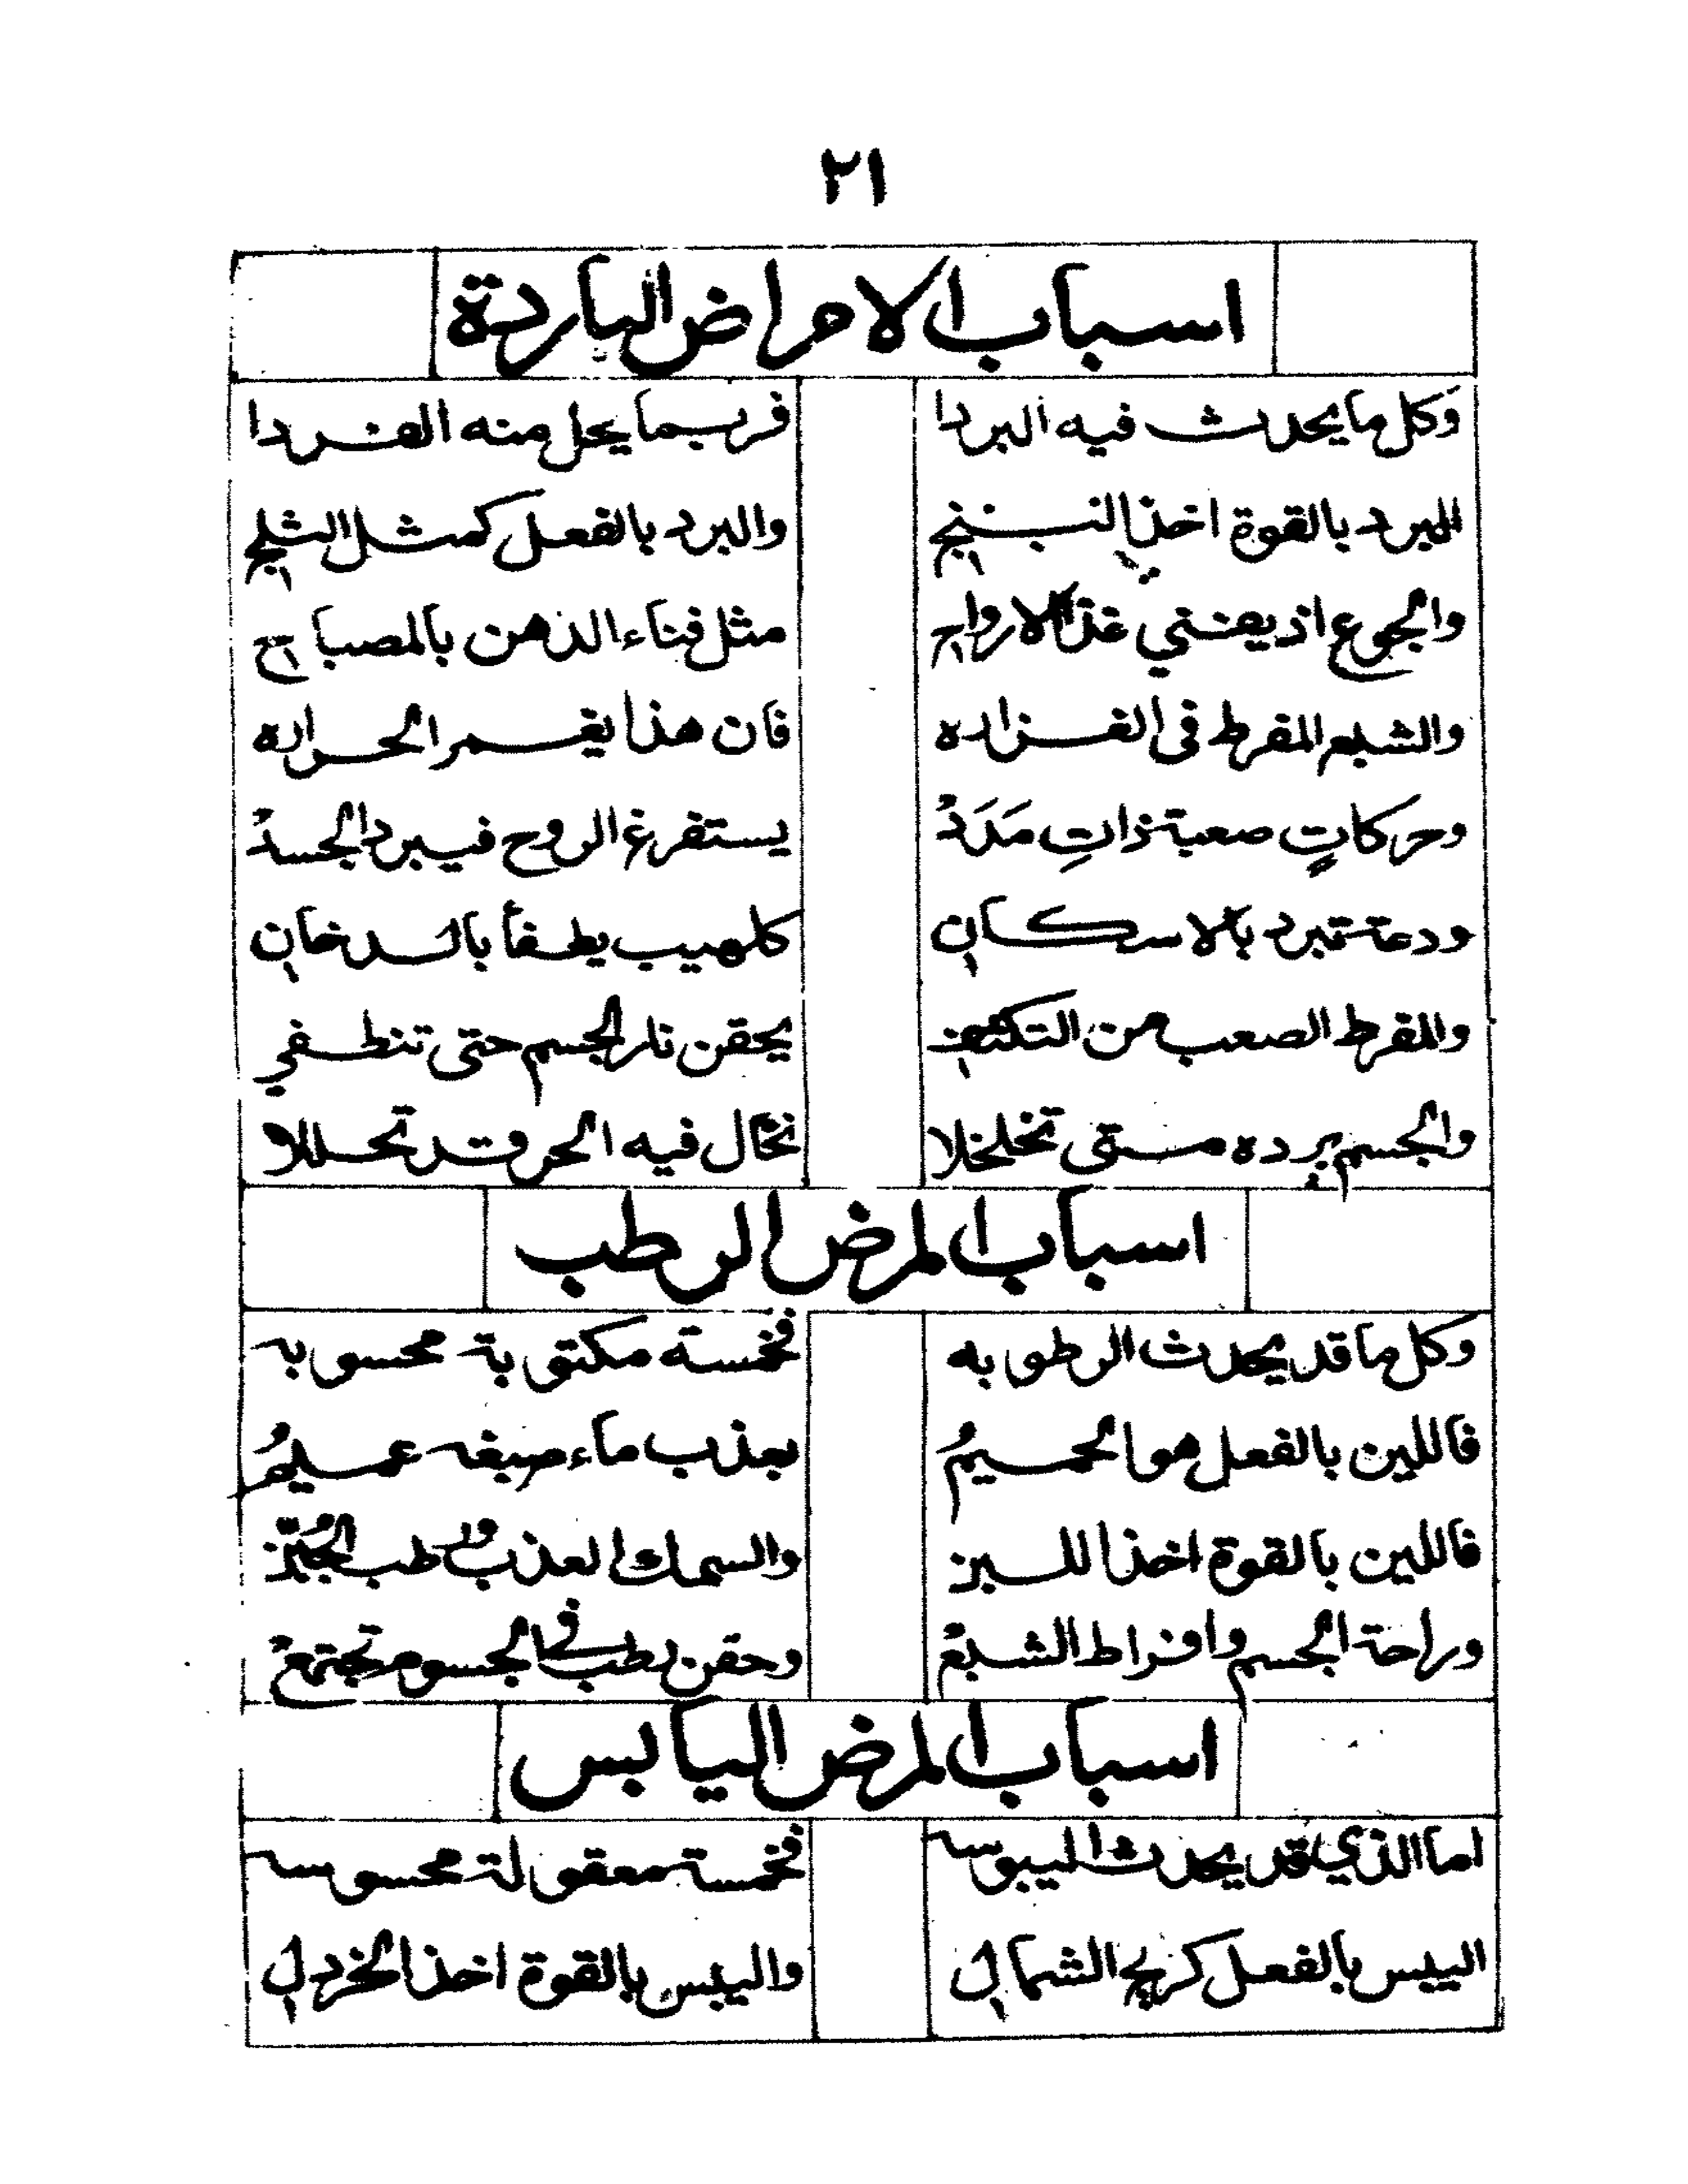 ٢١
اسباب الامراض الباردة
وكل ما يحدث فيه البردا فربما يحل منه الفردا
المبرد بالقوة اخذ البنج والبرد بالفعل كمثل الثلج
والجوع اذ يفني غذا الارواح مثل فناء الذهن بالمصباح
والشبع المفرط في الغزاره فان هذا يغمر الحراره
وحركاتٍ صعبة ذاتِ مَدَدُ يستفرغ الروح فيبرد الجسدُ
ودعة تبرد بالاسكان كلهيب يطفأ بالدخان
والمفرط الصعب من التكثف يحقن نار الجسم حتى تنطفي
والجسم برده متى تخلخلا تخال فيه الحر قد تحللا
اسباب المرض الرطب
وكل ما قد يحدث الرطوبه فخمسة مكتوبة محسوبه
فاللين بالفعل هو الحميمُ بعذب ماء صبغه عميمُ
فاللين بالقوة اخذ اللبز والسمك العذب ورطب الجُبّز
وراحة الجسم وافراط الشبعْ وحقن رطب في الجسوم تجتمعْ
اسباب المرض اليابس
اما الذي قد يحدث اليبوسه فخمسة معقولة محسوسه
اليبس بالفعل كريح الشمال واليبس بالقوة اخذ الخردل